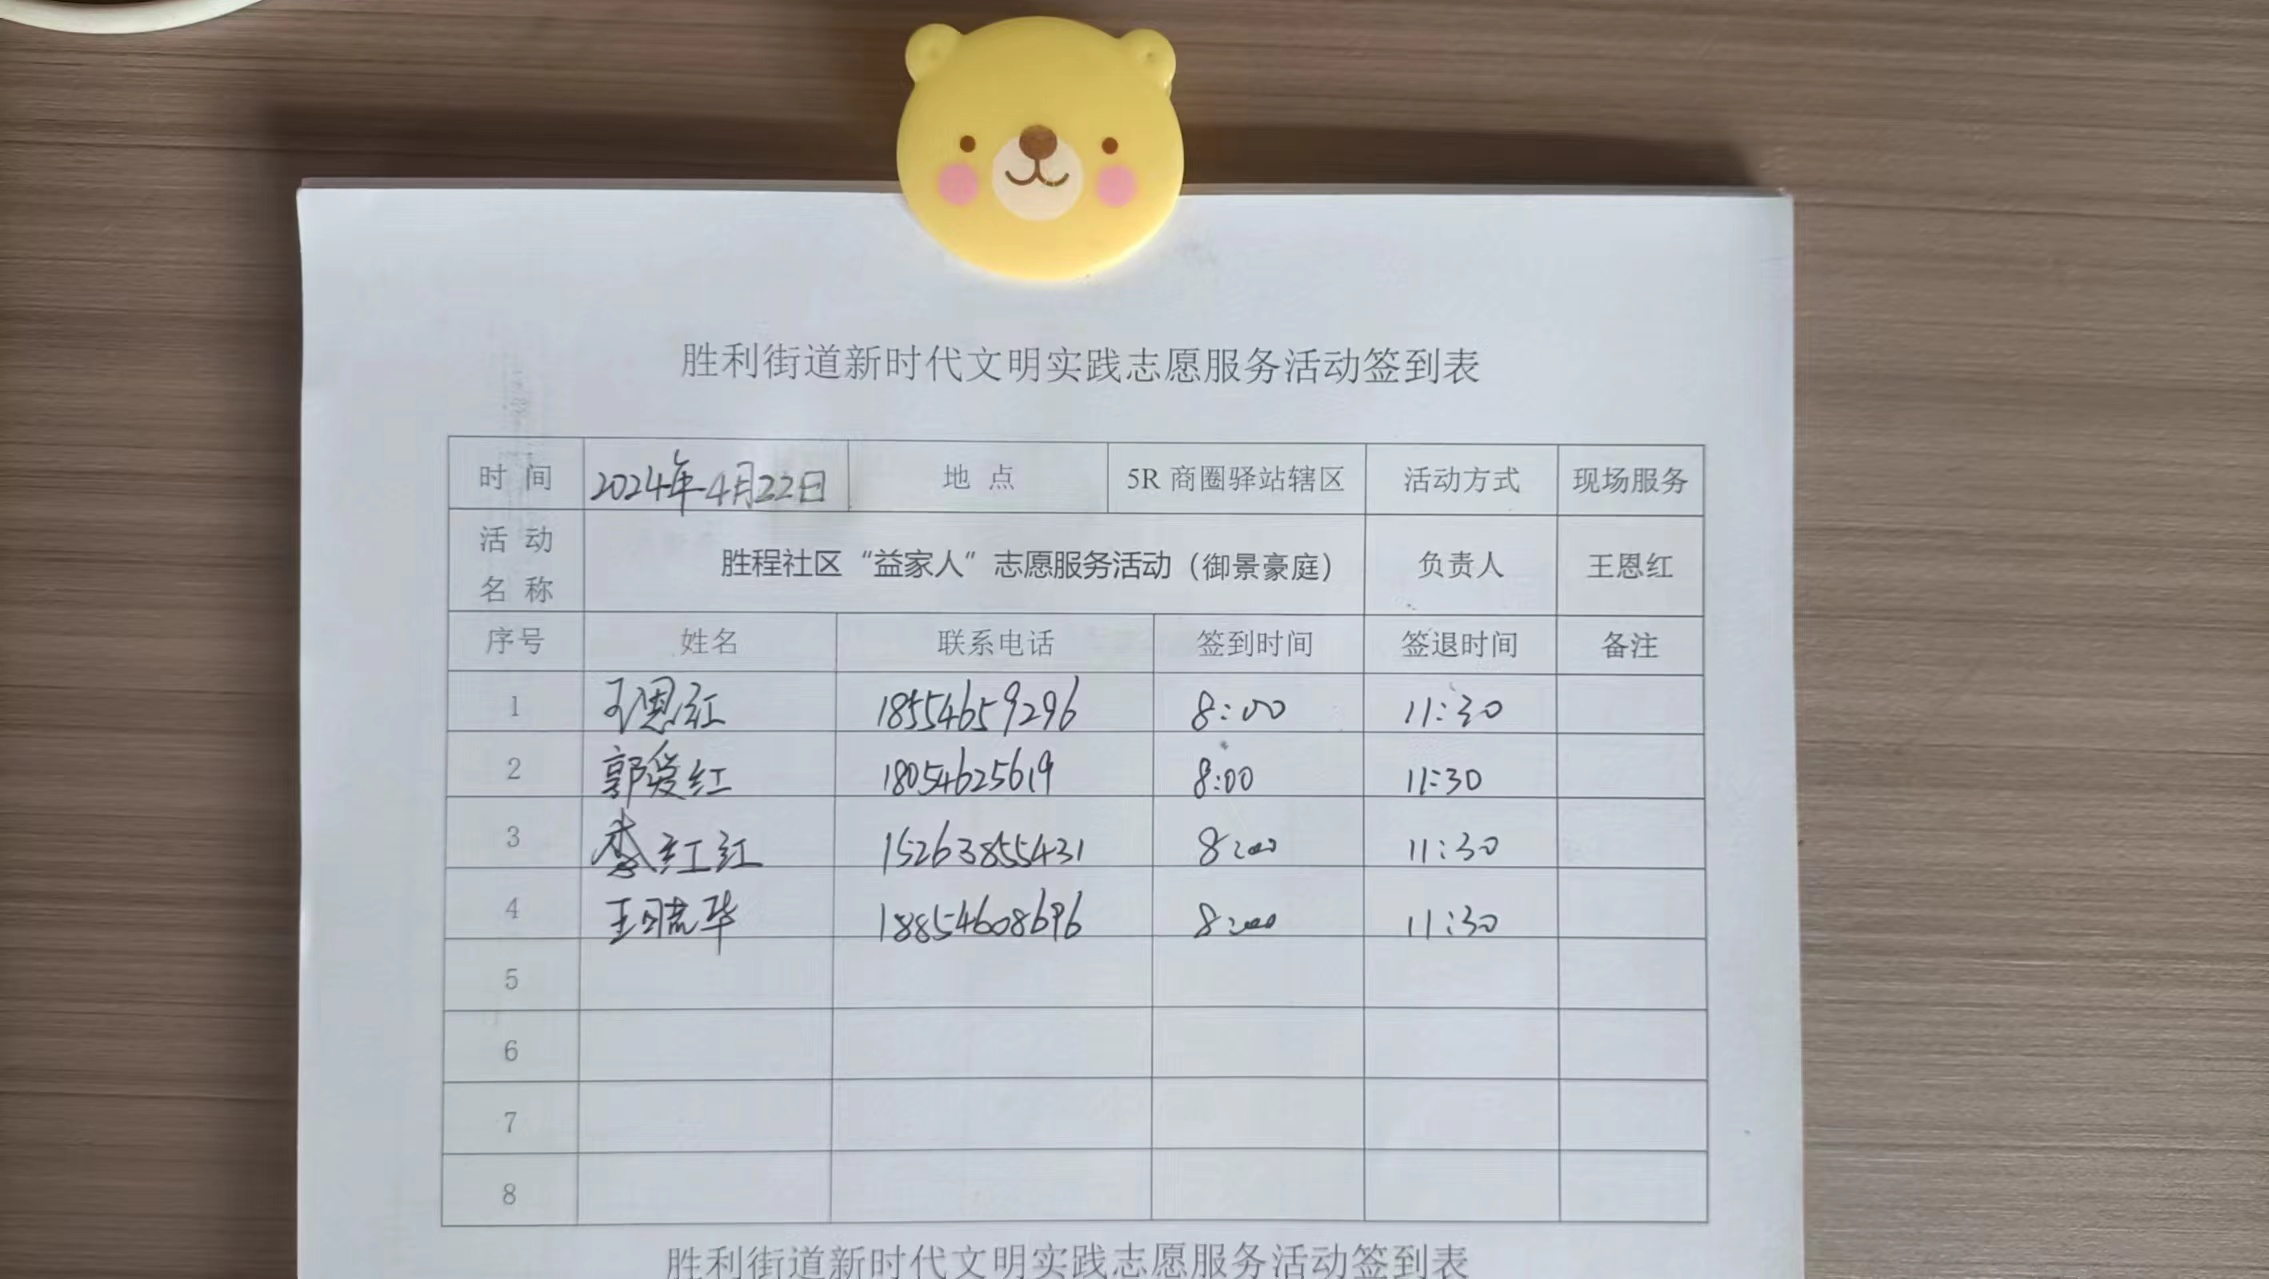 胜利街道新时代文明实践志愿服务活动签到表
时 间 2024年4月22日 地 点 5R 商圈驿站辖区 活动方式 现场服务
活 动
名 称 胜程社区“益家人”志愿服务活动（御景豪庭） 负责人 王恩红
序号 姓名 联系电话 签到时间 签退时间 备注
1 王恩红 18554659296 8:00 11:30
2 郭爱红 18054625619 8:00 11:30
3 李红红 15263855431 8:00 11:30
4 王晓华 18854608696 8:00 11:30
5
6
7
8
胜利街道新时代文明实践志愿服务活动签到表